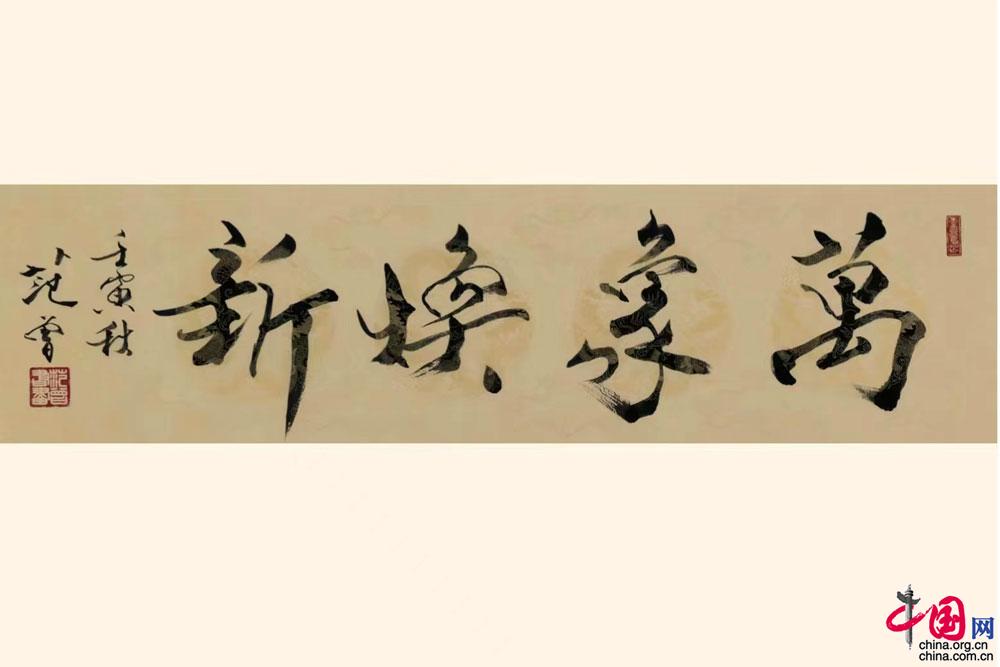 萬象煥新
壬寅秋
范曾
中国网
china.org.cn
china.com.cn